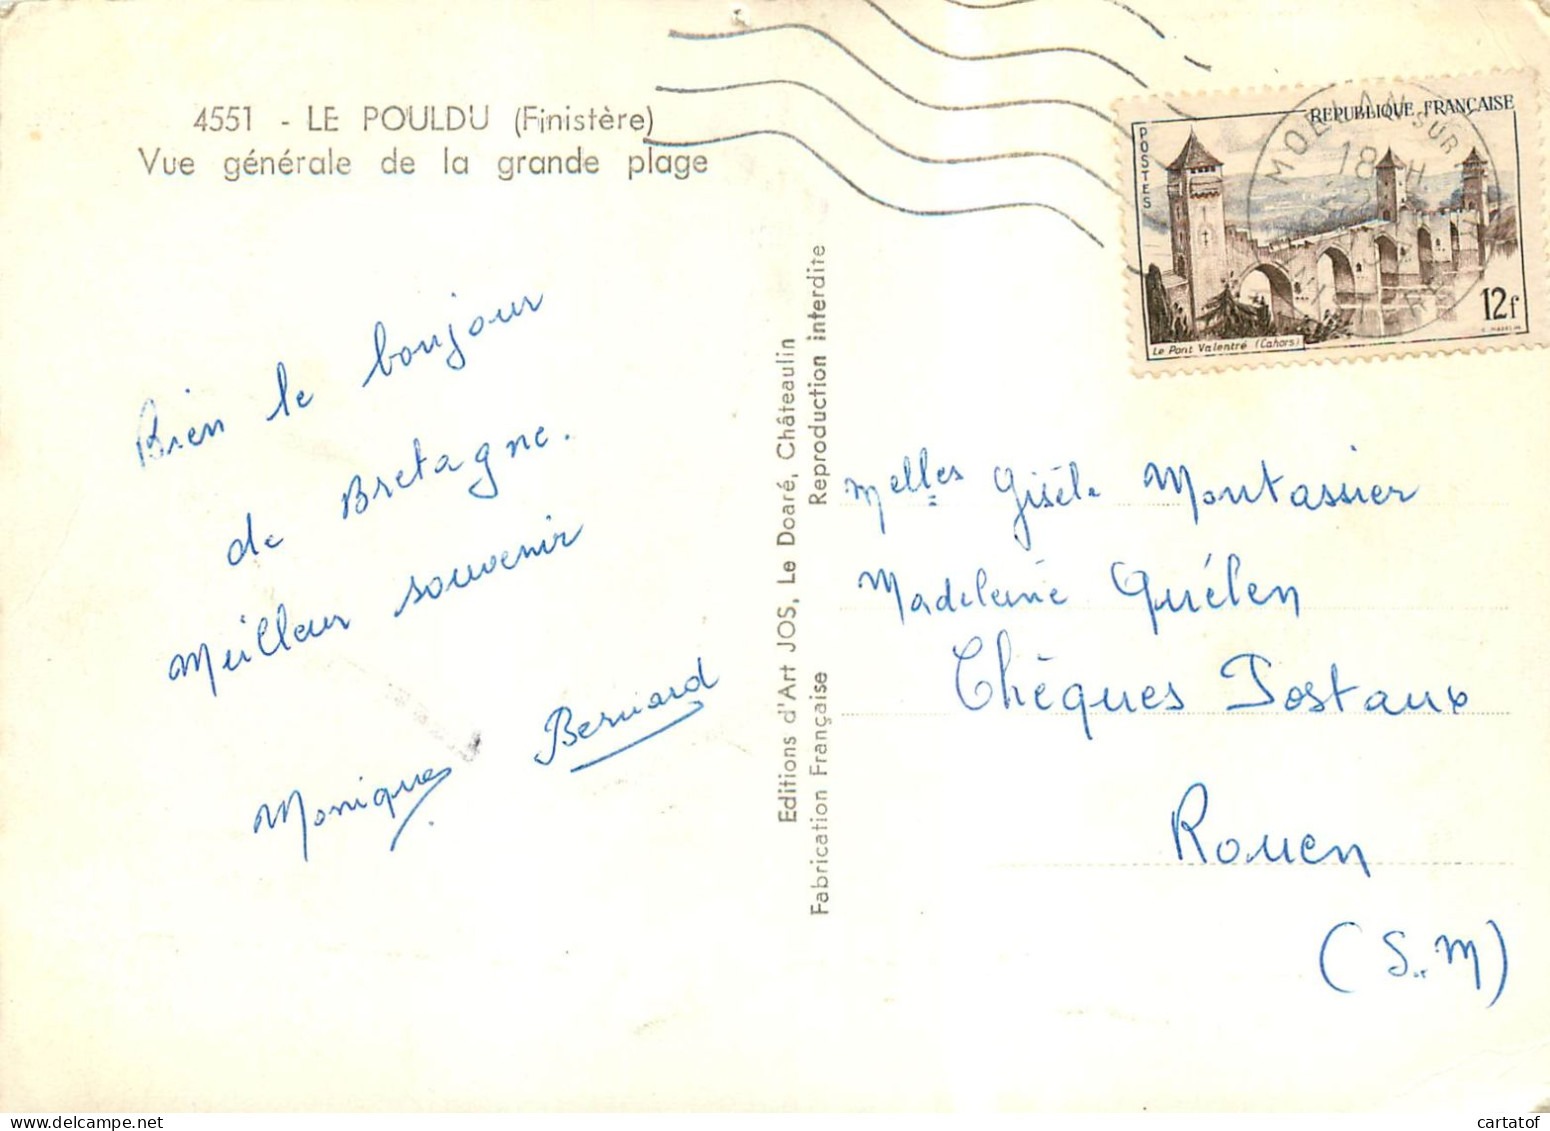 4551 - LE POULDU (Finistère)
Vue générale de la grande plage
Bien le bonjour
de Bretagne.
Meilleur souvenir
Monique Bernard
Editions d'Art JOS, Le Doaré, Châteaulin
Fabrication Française
Reproduction interdite
REPUBLIQUE FRANÇAISE
POSTES
MOELAN SUR
18 H
12f
Le Pont Valentré (Cahors)
Melles Gisèle Montassier
Madeleine Quélen
Chèques Postaux
Rouen
(S.M)
cartatof